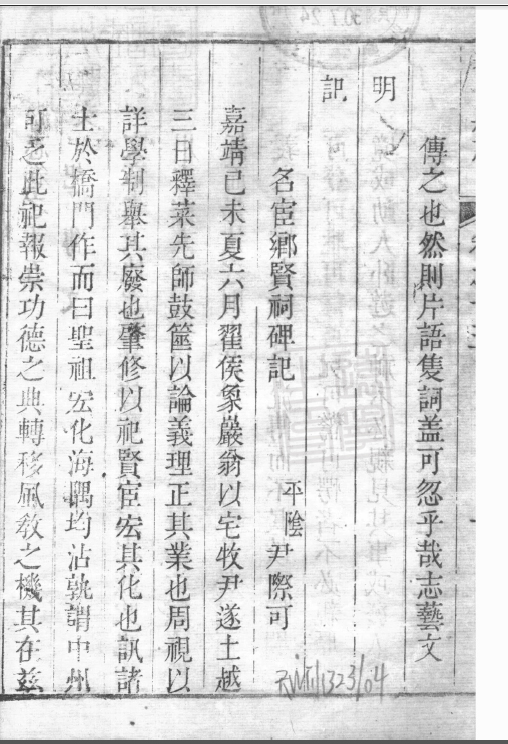 傳之也然則片語隻詞盖可忽乎哉志藝文
明
記
名宦鄉賢祠碑記 平陰 尹際可
嘉靖己未夏六月翟侯象巖翁以宅牧尹遂土越
三日釋菜先師鼓篋以論義理正其業也周視以
詳學制舉其廢也肇修以祀賢宦宏其化也訊諸
士於橋門作而曰聖祖宏化海隅均沾孰謂中州
可之此祀報崇功德之典轉移風敎之機其在兹